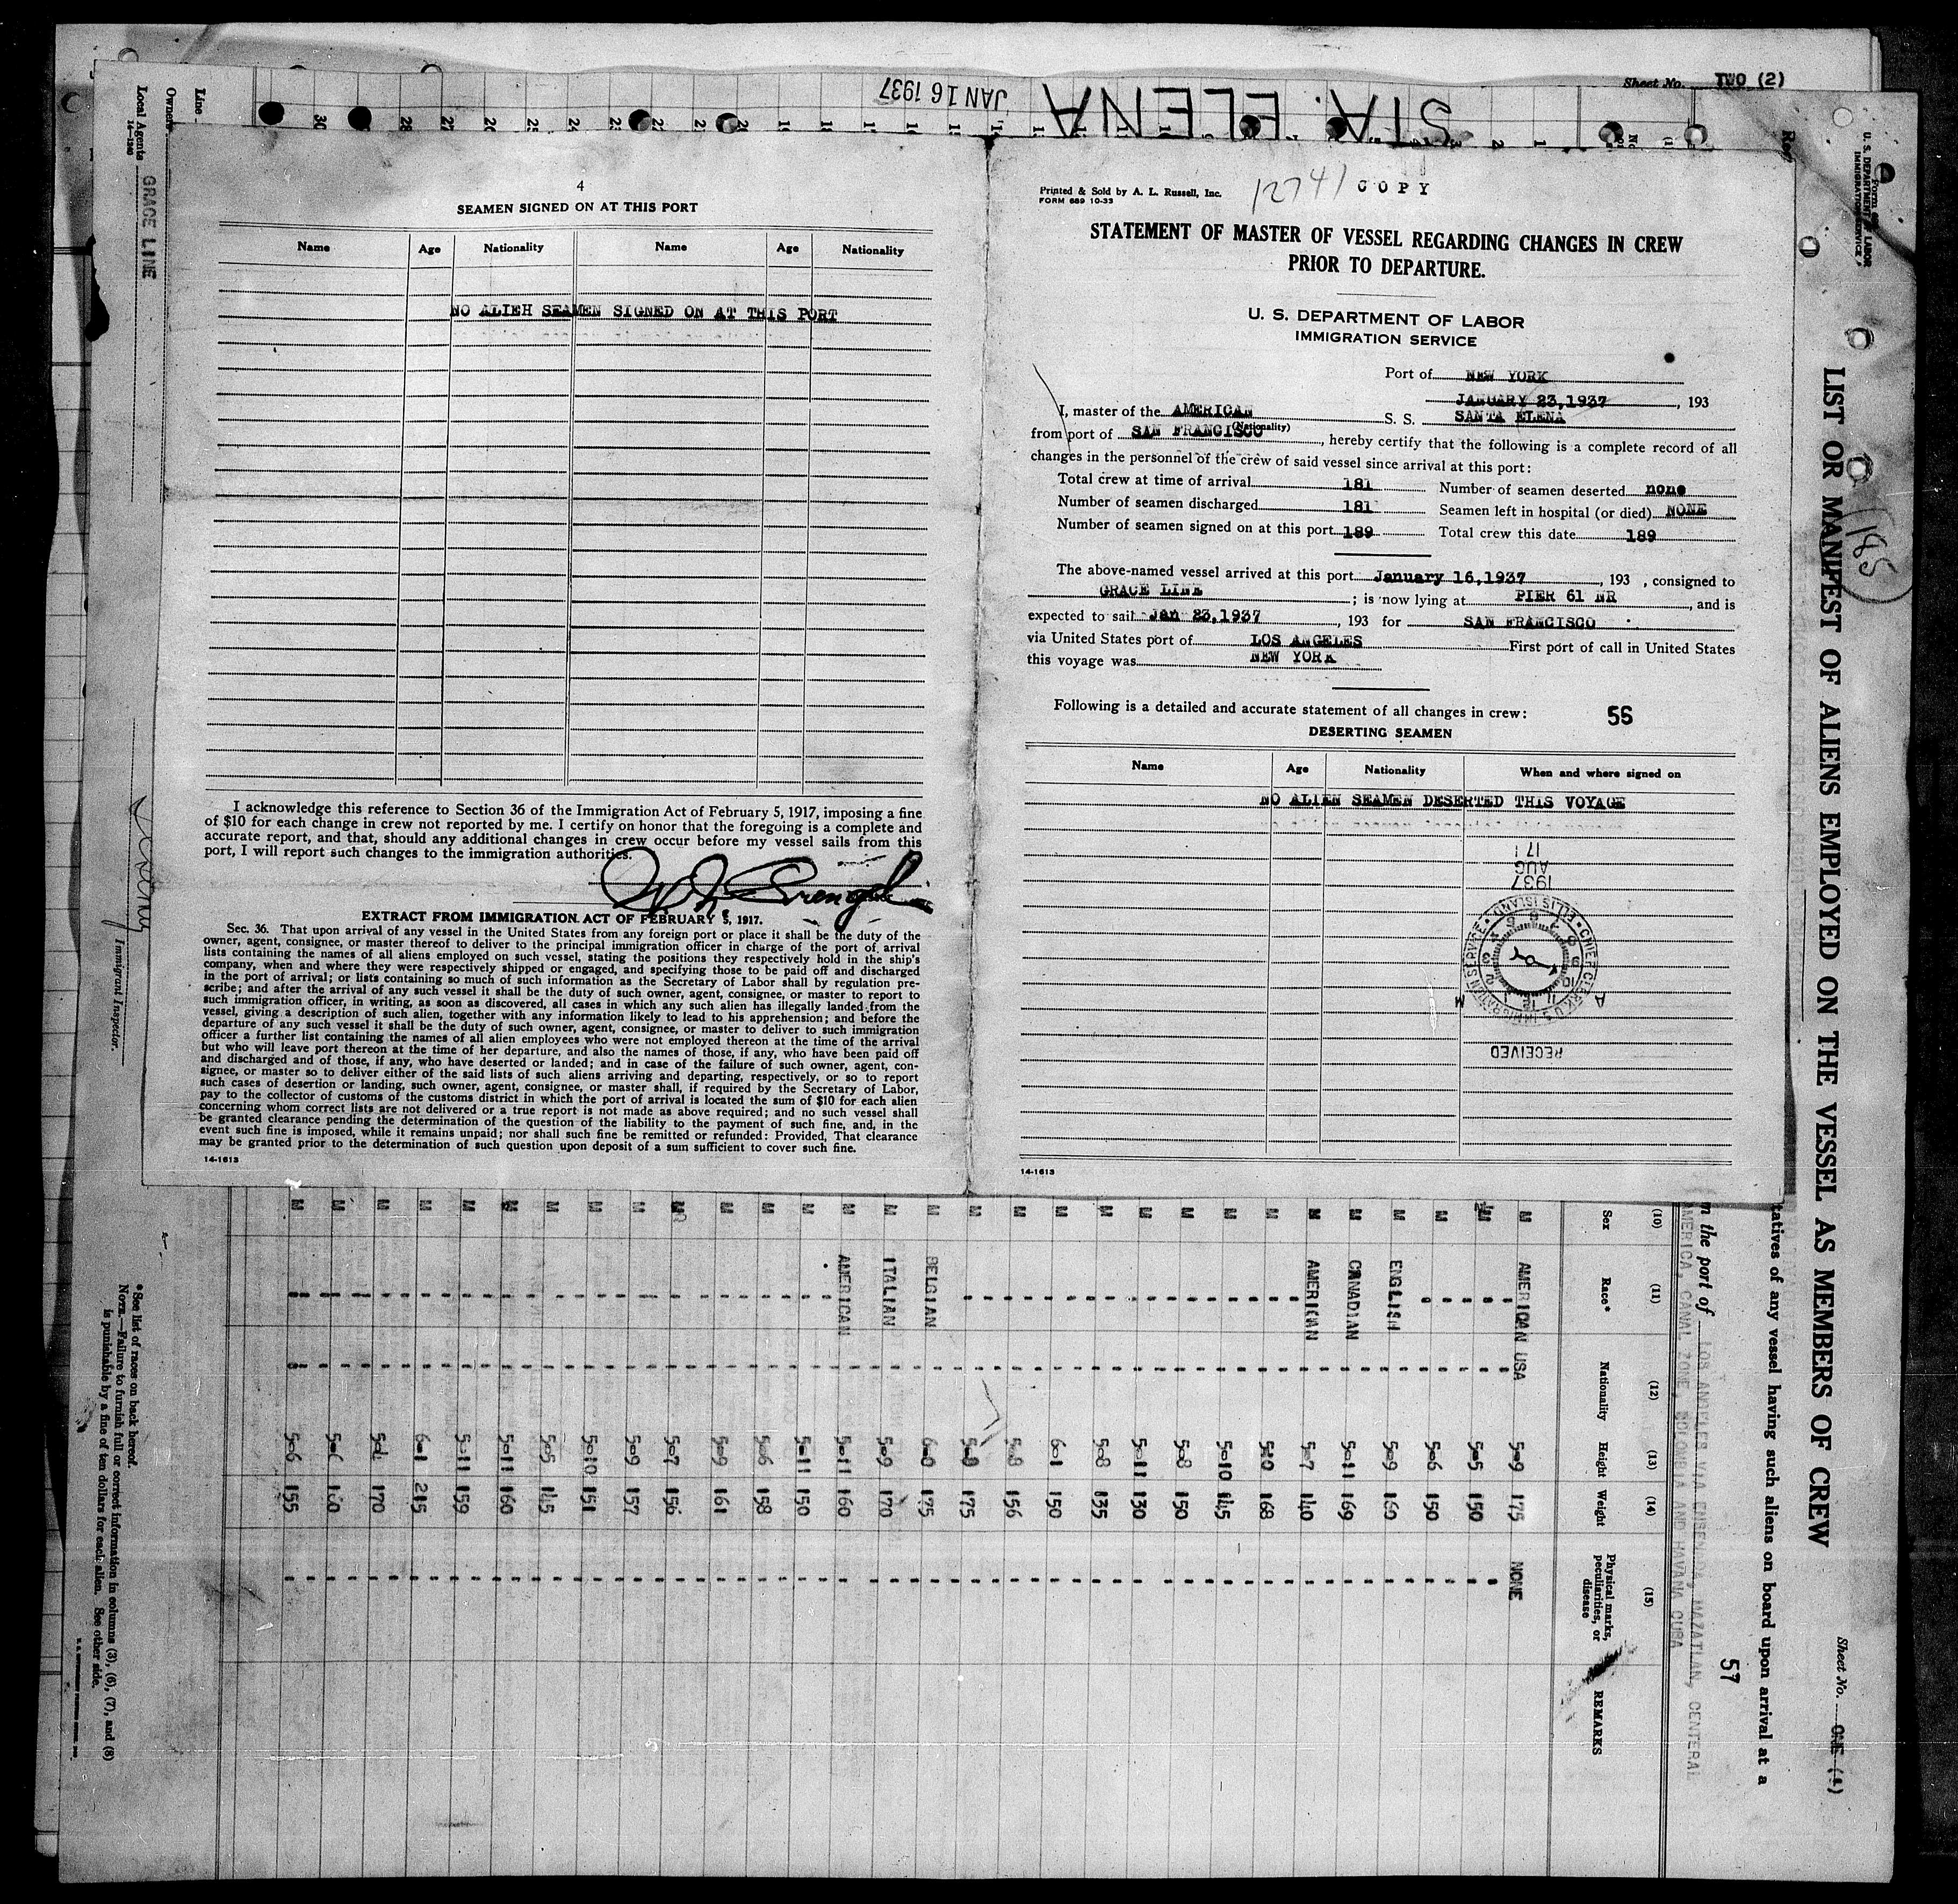 Sheet No. TWO (2)
JAN 16 1937
STA. ELENA
Line
Owners
Local Agents GRACE LINE
14-1240
Immigrant Inspector.
4
SEAMEN SIGNED ON AT THIS PORT
Name Age Nationality Name Age Nationality
NO ALIEH SEAMEN SIGNED ON AT THIS PORT
I acknowledge this reference to Section 36 of the Immigration Act of February 5, 1917, imposing a fine
of $10 for each change in crew not reported by me. I certify on honor that the foregoing is a complete and
accurate report, and that, should any additional changes in crew occur before my vessel sails from this
port, I will report such changes to the immigration authorities.
EXTRACT FROM IMMIGRATION ACT OF FEBRUARY 5, 1917.
Sec. 36. That upon arrival of any vessel in the United States from any foreign port or place it shall be the duty of the
owner, agent, consignee, or master thereof to deliver to the principal immigration officer in charge of the port of arrival
lists containing the names of all aliens employed on such vessel, stating the positions they respectively hold in the ship's
company, when and where they were respectively shipped or engaged, and specifying those to be paid off and discharged
in the port of arrival; or lists containing so much of such information as the Secretary of Labor shall by regulation pre-
scribe; and after the arrival of any such vessel it shall be the duty of such owner, agent, consignee, or master to report to
such immigration officer, in writing, as soon as discovered, all cases in which any such alien has illegally landed from the
vessel, giving a description of such alien, together with any information likely to lead to his apprehension; and before the
departure of any such vessel it shall be the duty of such owner, agent, consignee, or master to deliver to such immigration
officer a further list containing the names of all alien employees who were not employed thereon at the time of the arrival
but who will leave port thereon at the time of her departure, and also the names of those, if any, who have been paid off
and discharged and of those, if any, who have deserted or landed; and in case of the failure of such owner, agent, con-
signee, or master so to deliver either of the said lists of such aliens arriving and departing, respectively, or so to report
such cases of desertion or landing, such owner, agent, consignee, or master shall, if required by the Secretary of Labor,
pay to the collector of customs of the customs district in which the port of arrival is located the sum of $10 for each alien
concerning whom correct lists are not delivered or a true report is not made as above required; and no such vessel shall
be granted clearance pending the determination of the question of the liability to the payment of such fine, and, in the
event such fine is imposed, while it remains unpaid; nor shall such fine be remitted or refunded: Provided, That clearance
may be granted prior to the determination of such question upon deposit of a sum sufficient to cover such fine.
14-1613
Printed & Sold by A. L. Russell, Inc.
FORM 689 10-33
12741 COPY
STATEMENT OF MASTER OF VESSEL REGARDING CHANGES IN CREW
PRIOR TO DEPARTURE.
U. S. DEPARTMENT OF LABOR
IMMIGRATION SERVICE
Port of NEW YORK
JANUARY 23,1937, 193
I, master of the AMERICAN S. S. SANTA ELENA
(Nationality)
from port of SAN FRANCISCO, hereby certify that the following is a complete record of all
changes in the personnel of the crew of said vessel since arrival at this port:
Total crew at time of arrival 181 Number of seamen deserted none
Number of seamen discharged 181 Seamen left in hospital (or died) NONE
Number of seamen signed on at this port 189 Total crew this date 189
The above-named vessel arrived at this port January 16,1937, 193 , consigned to
GRACE LINE; is now lying at PIER 61 NR, and is
expected to sail Jan 23,1937, 193 for SAN FRANCISCO
via United States port of LOS ANGELES First port of call in United States
this voyage was NEW YORK
Following is a detailed and accurate statement of all changes in crew: 56
DESERTING SEAMEN
Name Age Nationality When and where signed on
NO ALIEN SEAMEN DESERTED THIS VOYAGE
RECEIVED
CHIEF CLERK U.S. IMMIGRATION SERVICE • ELLIS ISLAND •
A M
1937
AUG
17
14-1613
U. S. DEPARTMENT OF LABOR
IMMIGRATION SERVICE
LIST OR MANIFEST OF ALIENS EMPLOYED ON THE VESSEL AS MEMBERS OF CREW
185
Sheet No. ONE (1)
tatives of any vessel having such aliens on board upon arrival at a
m the port of LOS ANGELES VIA ENSENADA, MAZATLAN, CENTERAL
AMERICA, CANAL ZONE, COLOMBIA AND HAVANA CUBA
57
(10) (11) (12) (13) (14) (15)
Sex Race* Nationality Height Weight Physical marks, peculiarities, or disease REMARKS
M AMERICAN USA 5-9 175 NONE
M 5-5 150
M 5-6 150
M ENGLISH 5-9 160
M CANADIAN 5-11 169
M AMERICAN 5-7 140
M 5-10 168
M 5-10 145
M 5-8 150
M 5-11 130
M 5-8 135
M 6-1 150
M 5-8 156
M 5-8 175
M BELGIAN 6-0 175
M ITALIAN 5-9 170
M AMERICAN 5-11 160
M 5-11 150
M 5-6 158
M 5-9 161
M 5-7 156
M 5-9 157
M 5-10 151
M 5-5 145
M 5-11 160
M 5-11 159
M 6-1 215
M 170
M 5-6 160
M 5-6 155
*See list of races on back hereof.
NOTE.—Failure to furnish full or correct information in columns (3), (6), (7), and (8)
is punishable by a fine of ten dollars for each alien. See other side.